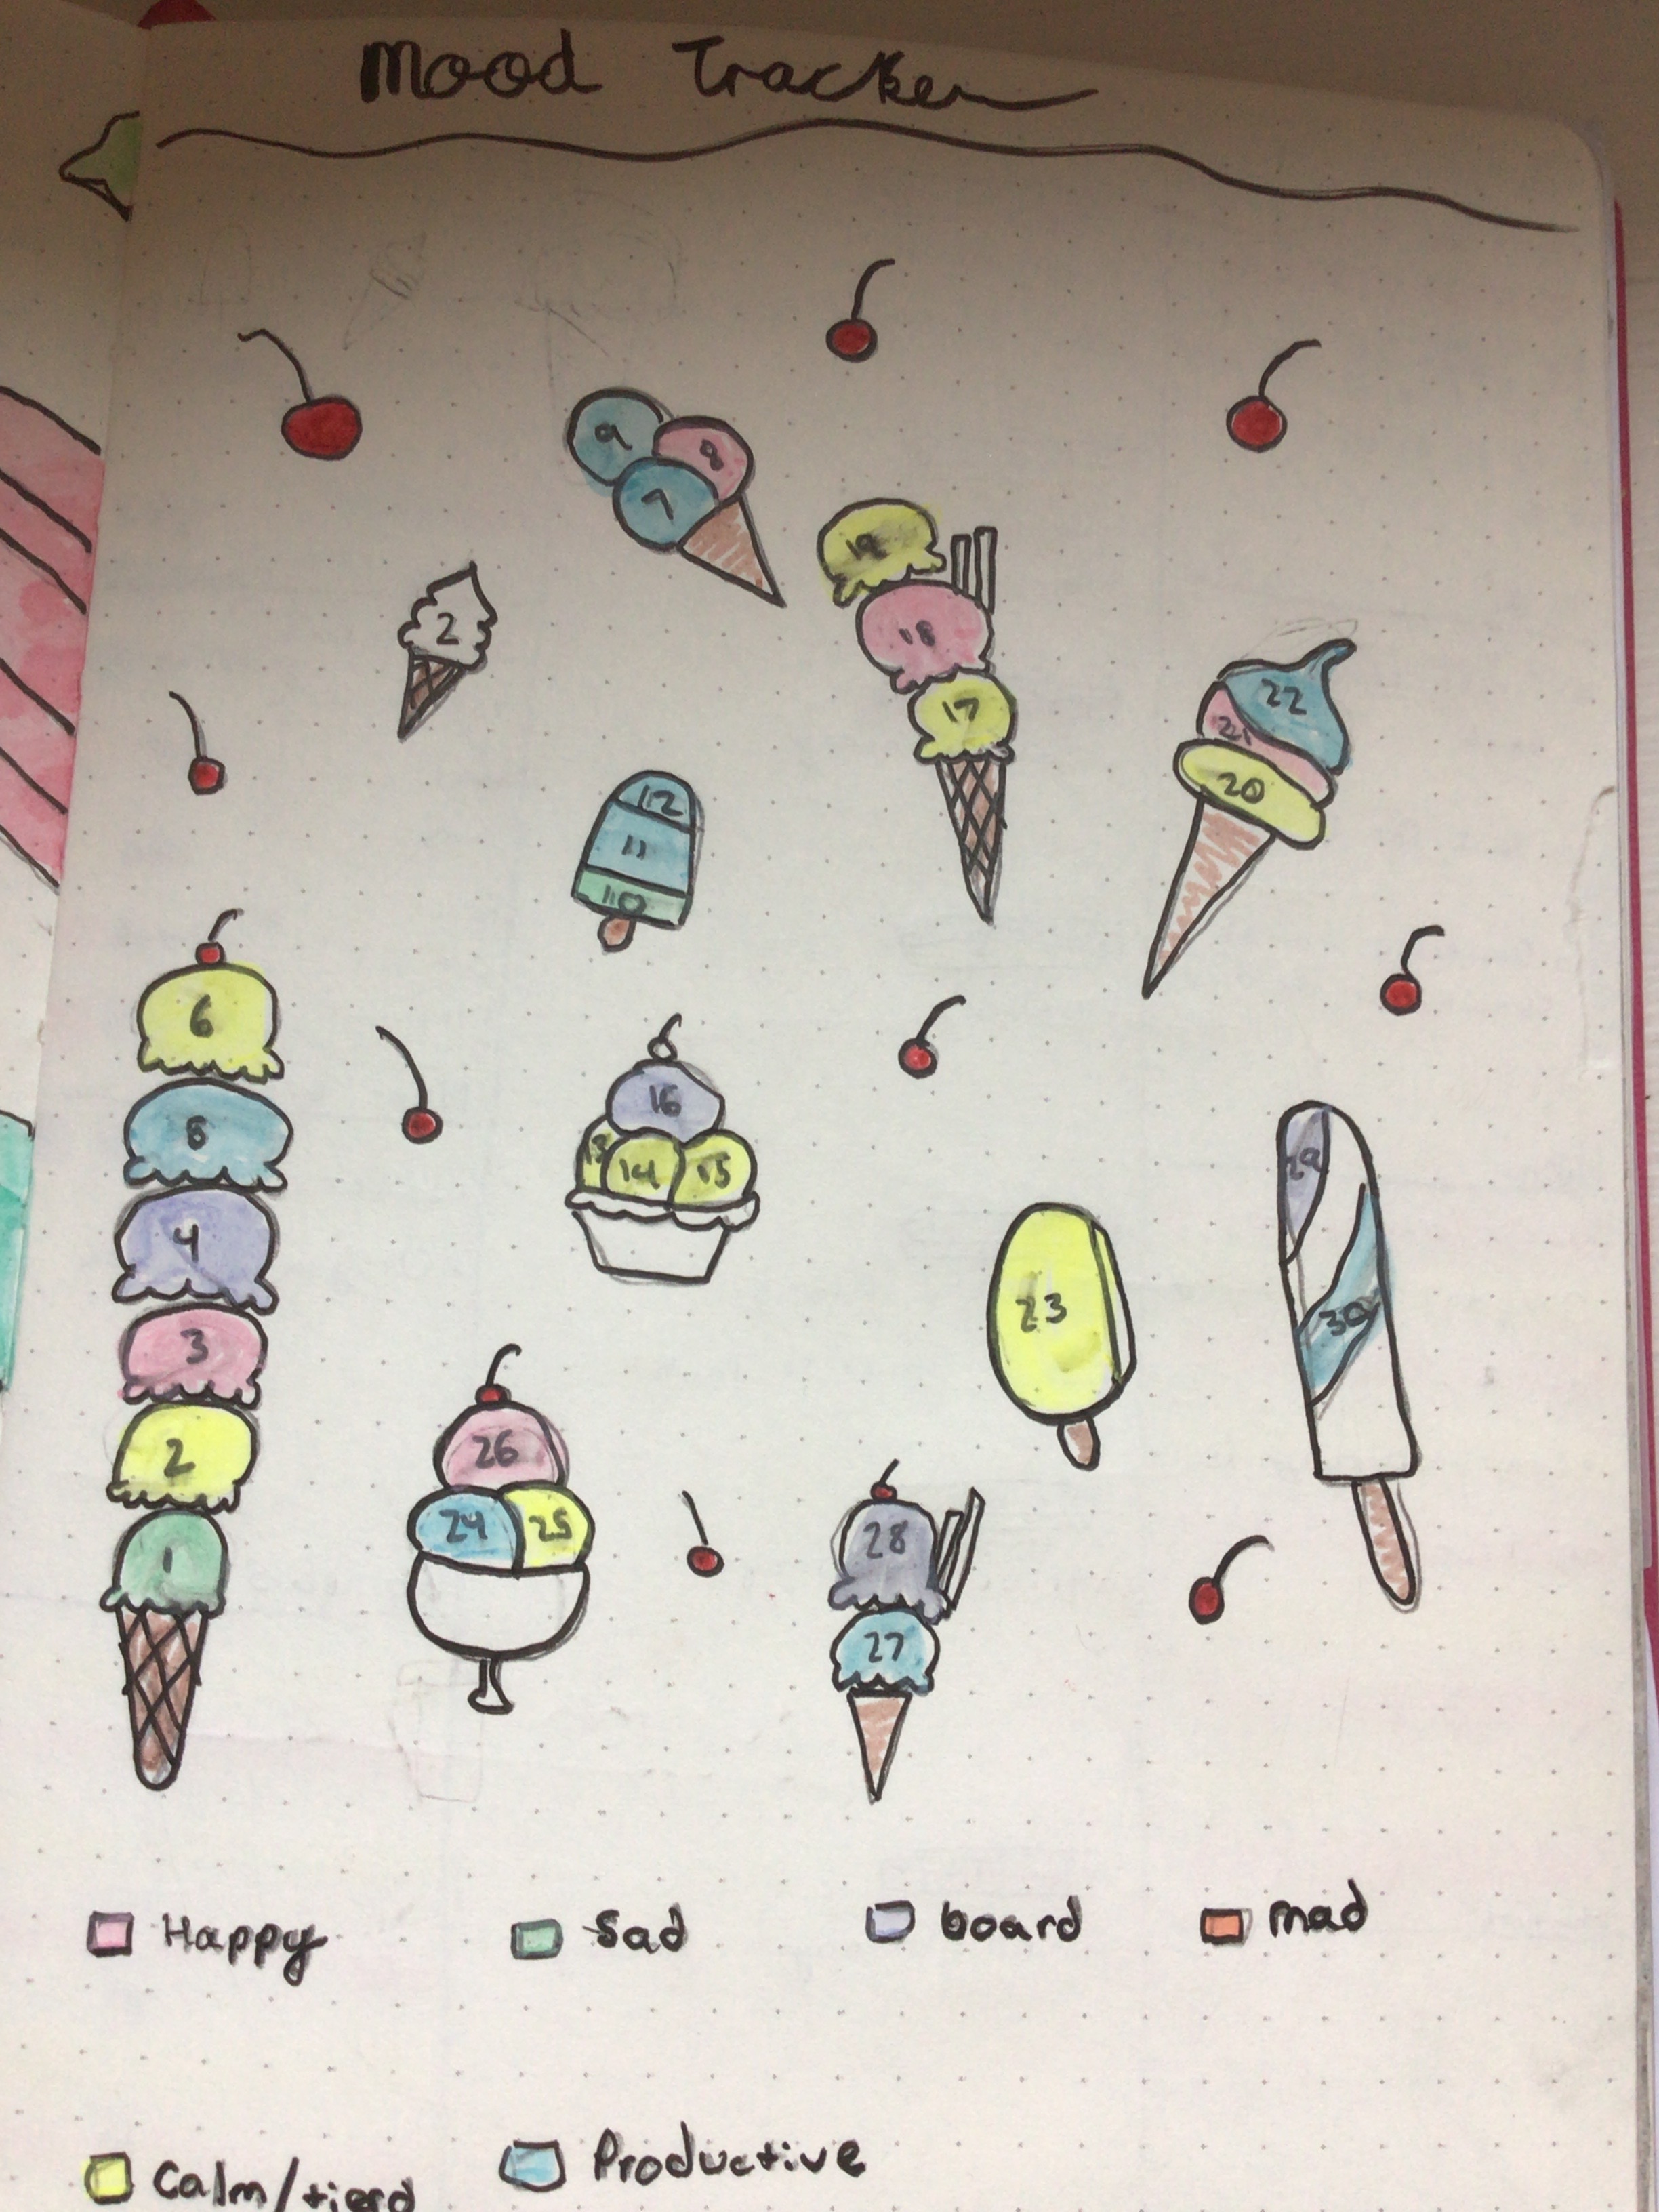 Mood Tracker
9
8
7
19
18
17
2
22
21
20
12
11
10
6
5
4
3
2
1
16
13 14 15
29
30
23
26
24 25
28
27
Happy Sad board mad
Calm/tierd Productive